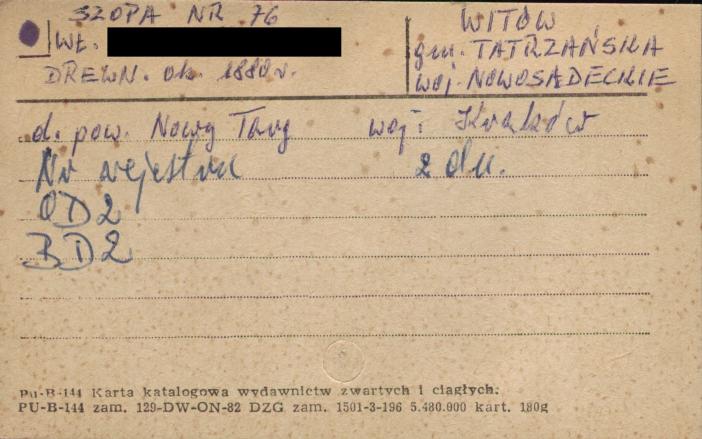 SZOPA NR 76
WŁ.
DREWN. ok. 1880 r.
WITÓW
gm. TATRZAŃSKA
woj. NOWOSĄDECKIE
d. pow. Nowy Targ woj: Kraków
Nr rejestru z dn.
OD2
BD2
PU-B-144 Karta katalogowa wydawnictw zwartych i ciągłych.
PU-B-144 zam. 129-DW-ON-82 DZG zam. 1501-3-196 5.480.000 kart. 180g